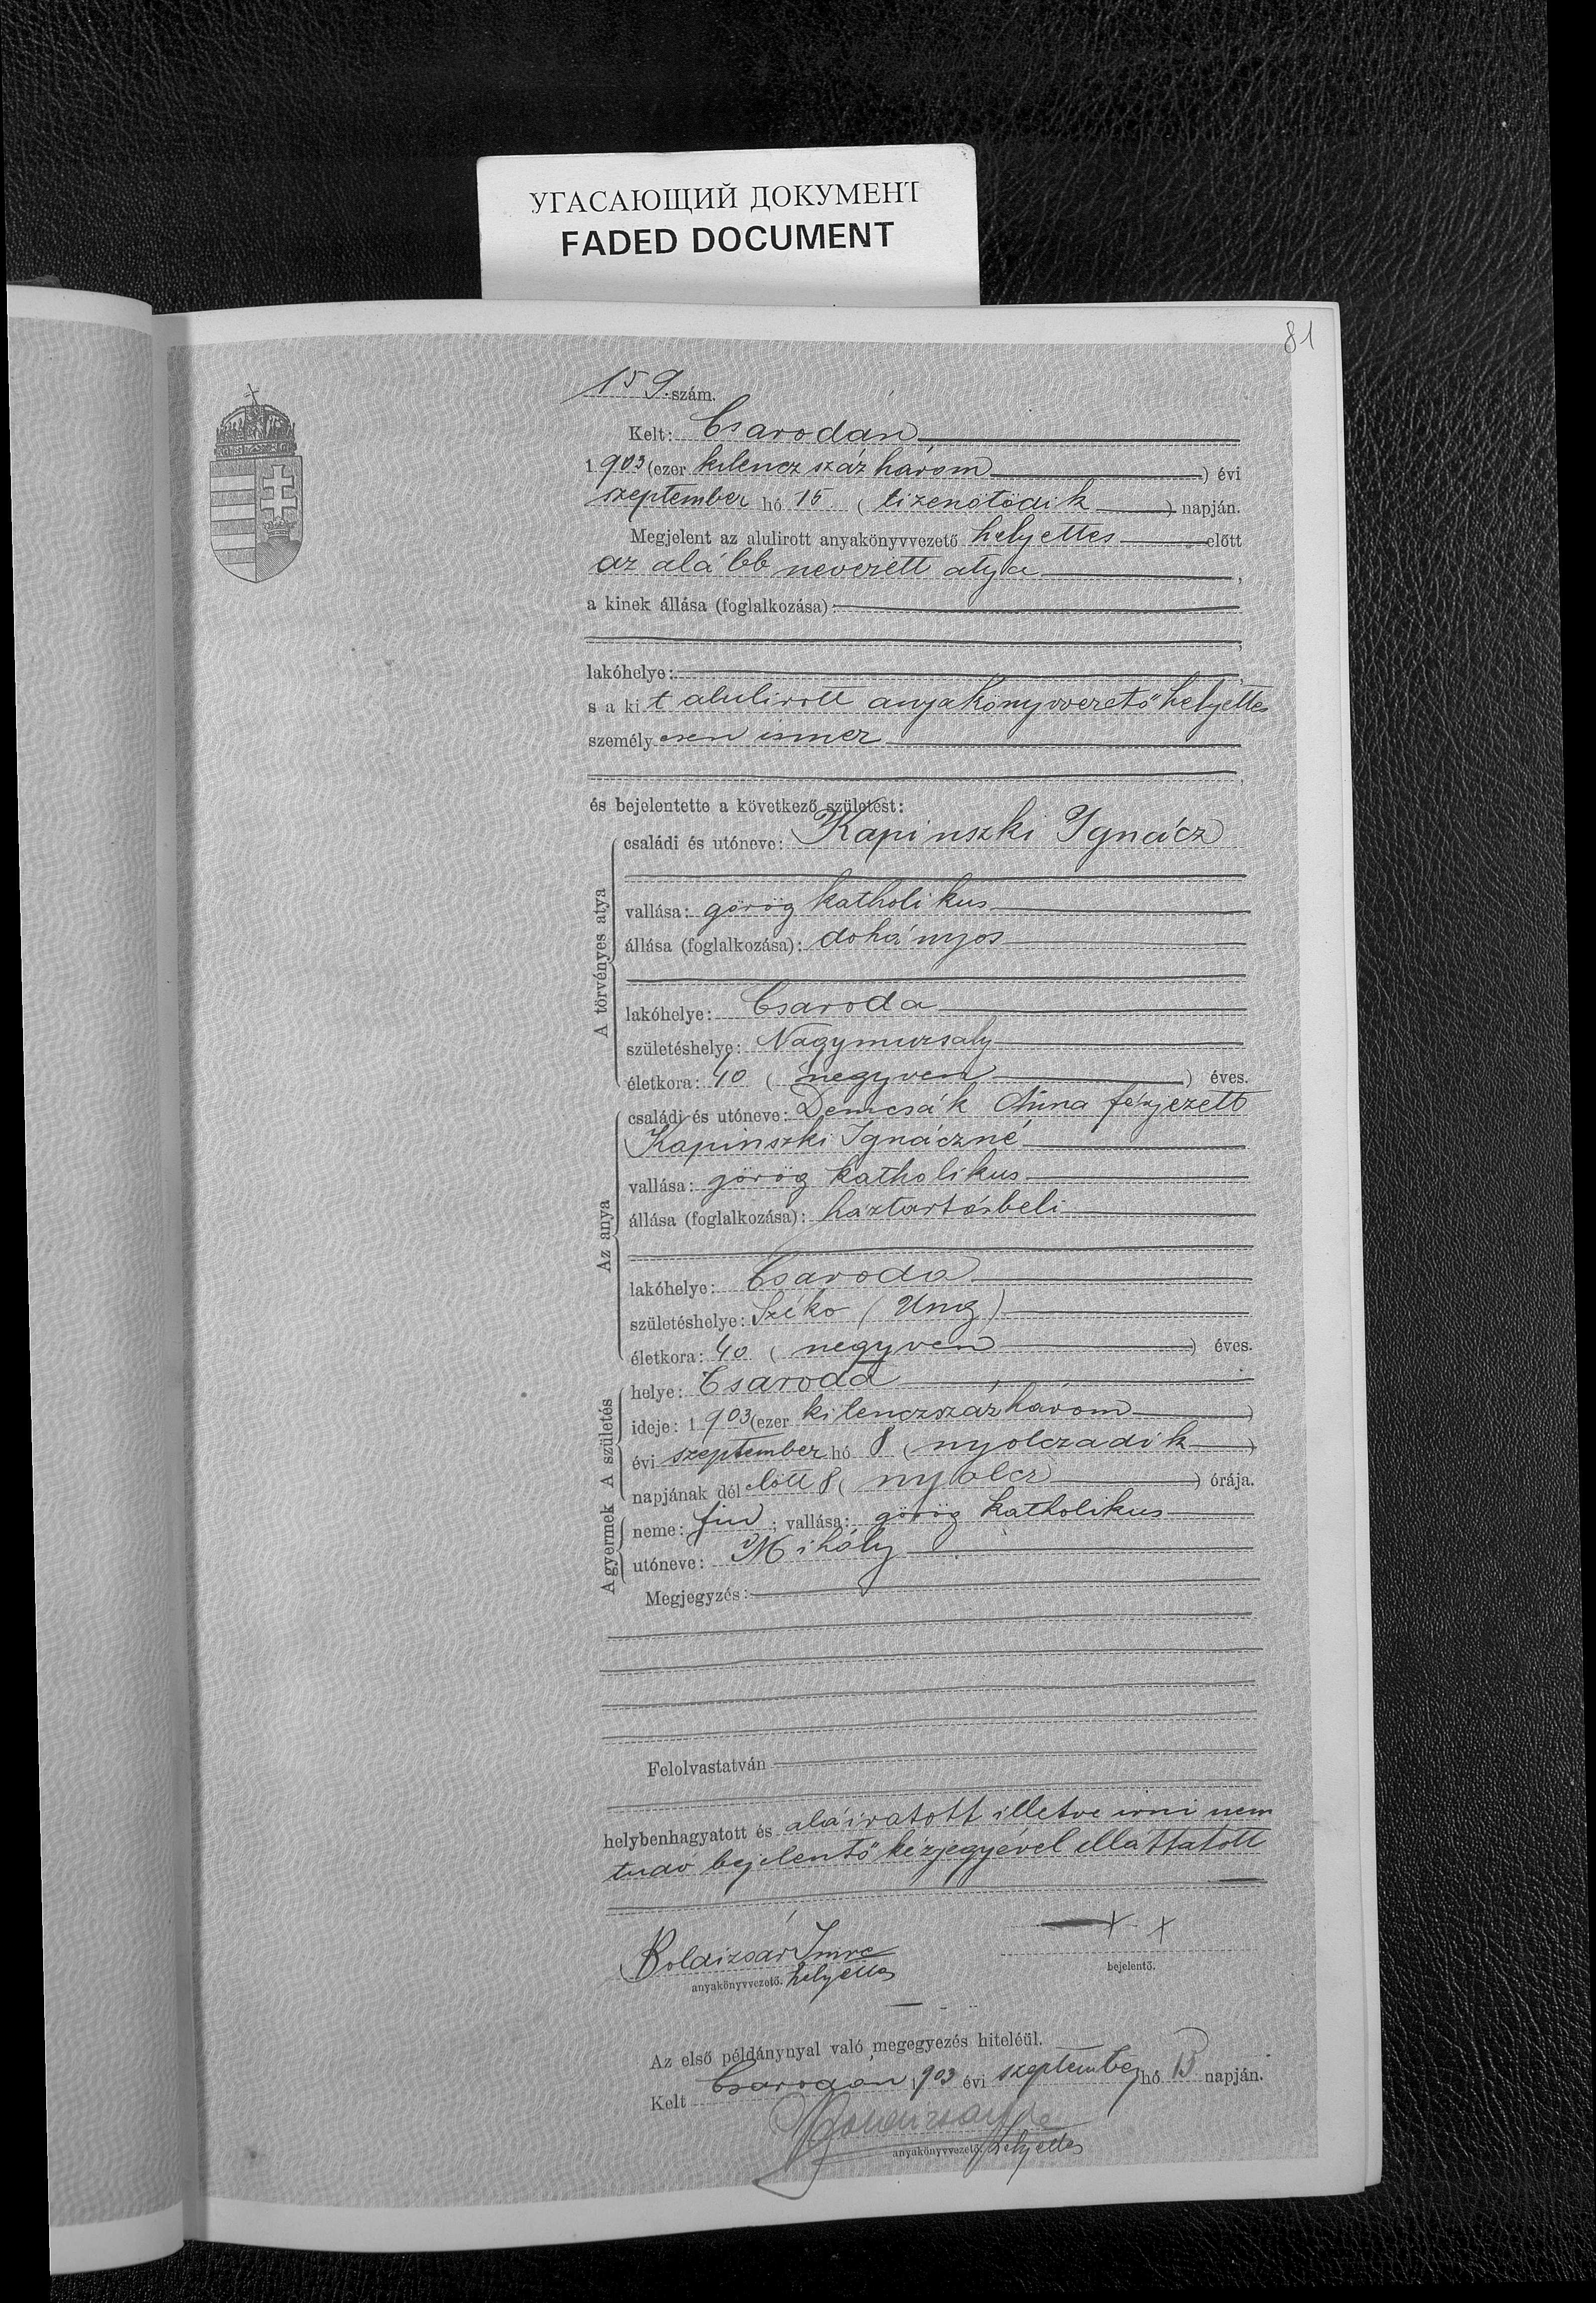 УГАСАЮЩИЙ ДОКУМЕНТ
FADED DOCUMENT
81
159. szám.
Kelt: Csarodán
1903 (ezer kilencz száz három) évi
szeptember hó 15 (tizenötödik) napján.
Megjelent az alulirott anyakönyvvezető helyettes előtt
az alább nevezett atya,
a kinek állása (foglalkozása):
lakóhelye:
s a kit alulirott anyakönyvvezető helyettes
személyesen ismer
és bejelentette a következő születést:
A törvényes atya
családi és utóneve: Kapinszki Ignácz
vallása: görög katholikus
állása (foglalkozása): dohányos
lakóhelye: Csaroda
születéshelye: Nagymuzsaly
életkora: 40 (negyven) éves.
Az anya
családi és utóneve: Demcsák Anna férjezett
Kapinszki Ignáczné
vallása: görög katholikus
állása (foglalkozása): háztartásbeli
lakóhelye: Csaroda
születéshelye: (Ung)
életkora: 40 (negyven) éves.
A születés
helye: Csaroda
ideje: 1903 (ezer kilenczszázhárom)
évi szeptember hó 8 (nyolczadik)
napjának délelőtt 8 (nyolcz) órája.
A gyermek
neme: fiú; vallása: görög katholikus
utóneve: Mihály
Megjegyzés:
Felolvastatván
helybenhagyatott és aláiratott illetve irni nem
tudó bejelentő kézjegyével elláttatott
Boldizsár Imre
anyakönyvvezető. helyettes
x x
bejelentő.
Az első példánynyal való megegyezés hiteléül.
Kelt Csarodán 1903 évi szeptember hó 15 napján.
Boldizsár Imre
anyakönyvvezető. helyettes